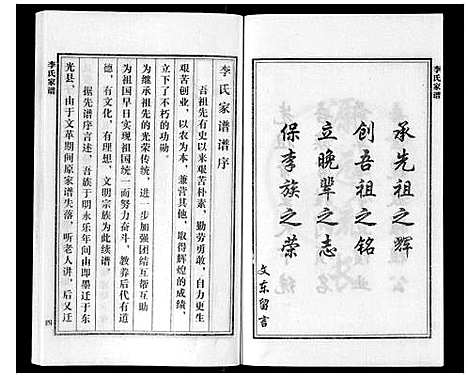 李氏家谱
承先祖之辉
创吾祖之铭
立晚辈之志
保李族之荣
文东留言
李氏家谱谱序
吾祖先有史以来艰苦朴素,勤劳勇敢,自力更生
艰苦创业,以农为本,兼营其他,取得辉煌的成绩,
立下了不朽的功勋。
为继承祖先的光荣传统,进一步加强团结互帮互助
为祖国早日实现祖国统一而努力奋斗,教养后代有道
德,有文化,有理想,文明宗族为此续谱。
据先谱序言述,吾族于明永乐年间由即墨迁于东
光县,由于文革期间原家谱失落,听老人讲,后又迁
李氏家谱
四